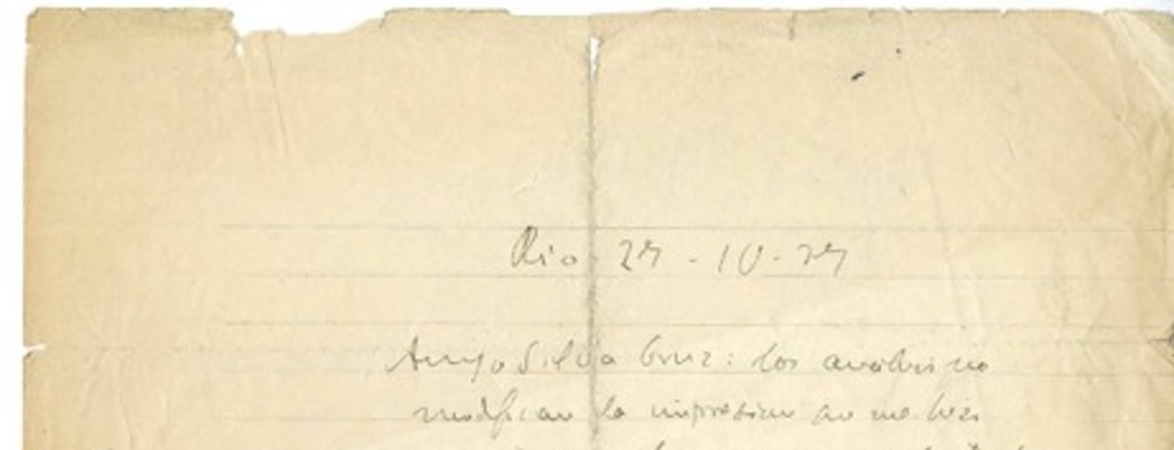 Rio 27 - 10 - 27
Amigo Silva Cruz: los análisis no
modifican la impresion que me hizo